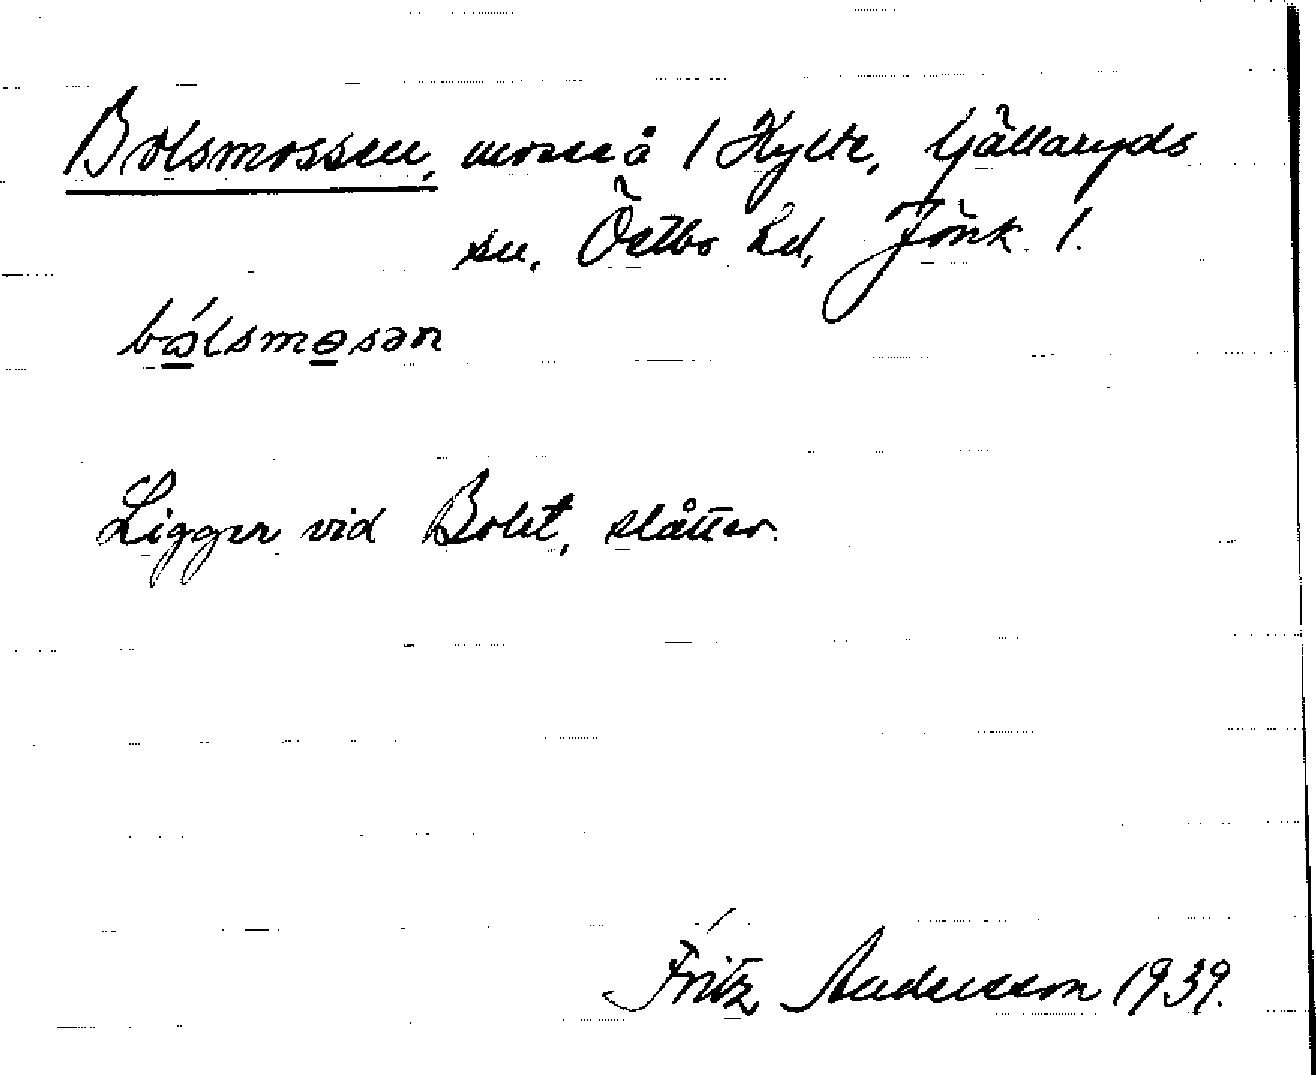 Bolsmossen, mosse å 1 Hylte, Gällaryds
sn, Östbo hd, Jönk. l.
bólsmosən
Ligger vid Bolet, slåtter.
Fritz Andersson 1939.